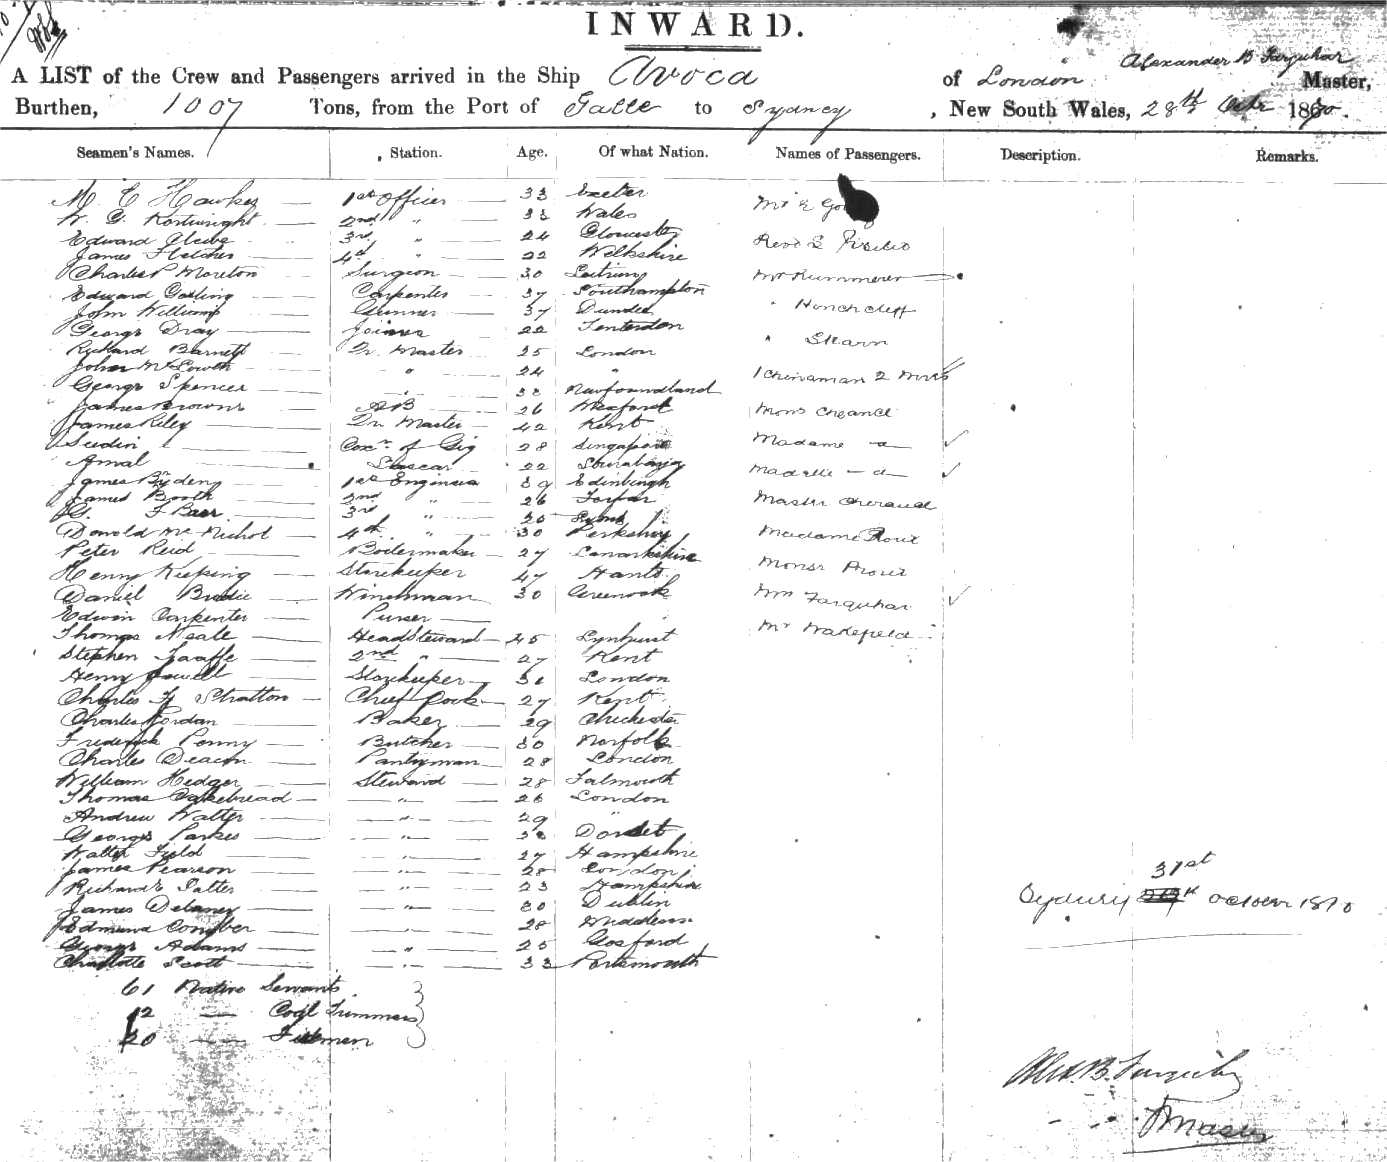 INWARD.
A LIST of the Crew and Passengers arrived in the Ship Avoca of London Alexander B Farquhar Master,
Burthen, 1007 Tons, from the Port of Galle to Sydney, New South Wales, 28th Octr 1870.
Seamen's Names. Station. Age. Of what Nation. Names of Passengers. Description. Remarks.
M. E Hawker 1st officer 33 Exeter Mr &
W. G. Kortwright 2nd " 33 Wales
Edward 3rd " 24 Gloucester Revd
James Fletcher 4th " 22 Wiltshire
Charles P Moreton Surgeon 30 Leitrim Mr Rummerer
Edward Gosling Carpenter 37 Southampton
John Williams Gunner 37 Dundee " Hinchcliff
George Dray Joiner 22 Tenterden
Richard Barnett Qr. Master 25 London " Shearn
John McLowth " 24 "
George Spencer " 38 Newfoundland 1 Chinaman 2
James Browne AB 26 Wexford
James Riley Qr Master 42 Kent Mons
Sudin Coxn. of Gig 28 Singapore Madame — a —
Amal Lascar 22 Sourabaya
James Ryden 1st Engineer 39 Edinburgh — a —
James Booth 2nd " 26 Forfar Master
F Barr 3rd " 25
Donald McNichol 4th " 30 Perthshire Madame Prout
Peter Reid Boilermaker 27 Lanarkshire
Henry Keeping Storekeeper 47 Hants Monsr Prout
Daniel Brodie Winchman 30 Greenock Mrs Farquhar
Edwin Carpenter Purser
Thomas Neale Head Steward 45 Lynhurst Mr Wakefield
Stephen Taaffe 2nd " 27 Kent
Henry Jowell Storekeeper 31 London
Charles Fy Stratton Chief Cook 27 Kent
Charles Jordan Baker 29 Chichester
Frederick Penny Butcher 30 Norfolk
Charles Deacon Pantryman 28 London
William Hedger Steward 28 Falmouth
Thomas Cakebread " 26 London
Andrew Walter " 29 "
George Parkes " 38 Dorset
Walter Field " 27 Hampshire
James Pearson " 28 London
Richard Salter " 23 Hampshire
James Delaney " 30 Dublin
Edmund Comber " 28 Middlesex
George Adams " 25 Gosford
Charlotte Scott " 33 Portsmouth
61 Native Servants
12 — Coal Trimmers
20 — Firemen
Sydney 31st October 1870
Alex. B. Farquhar
Master